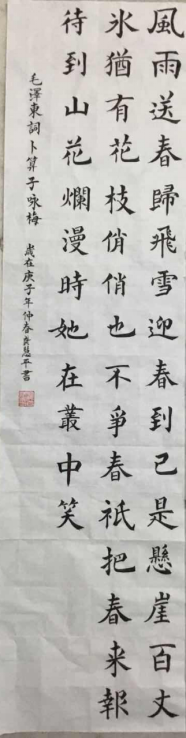 風雨送春歸飛雪迎春到已是懸崖百丈
氷猶有花枝俏俏也不爭春祇把春来報
待到山花爛漫時她在叢中笑
毛澤東詞卜算子咏梅
歲在庚子年仲春